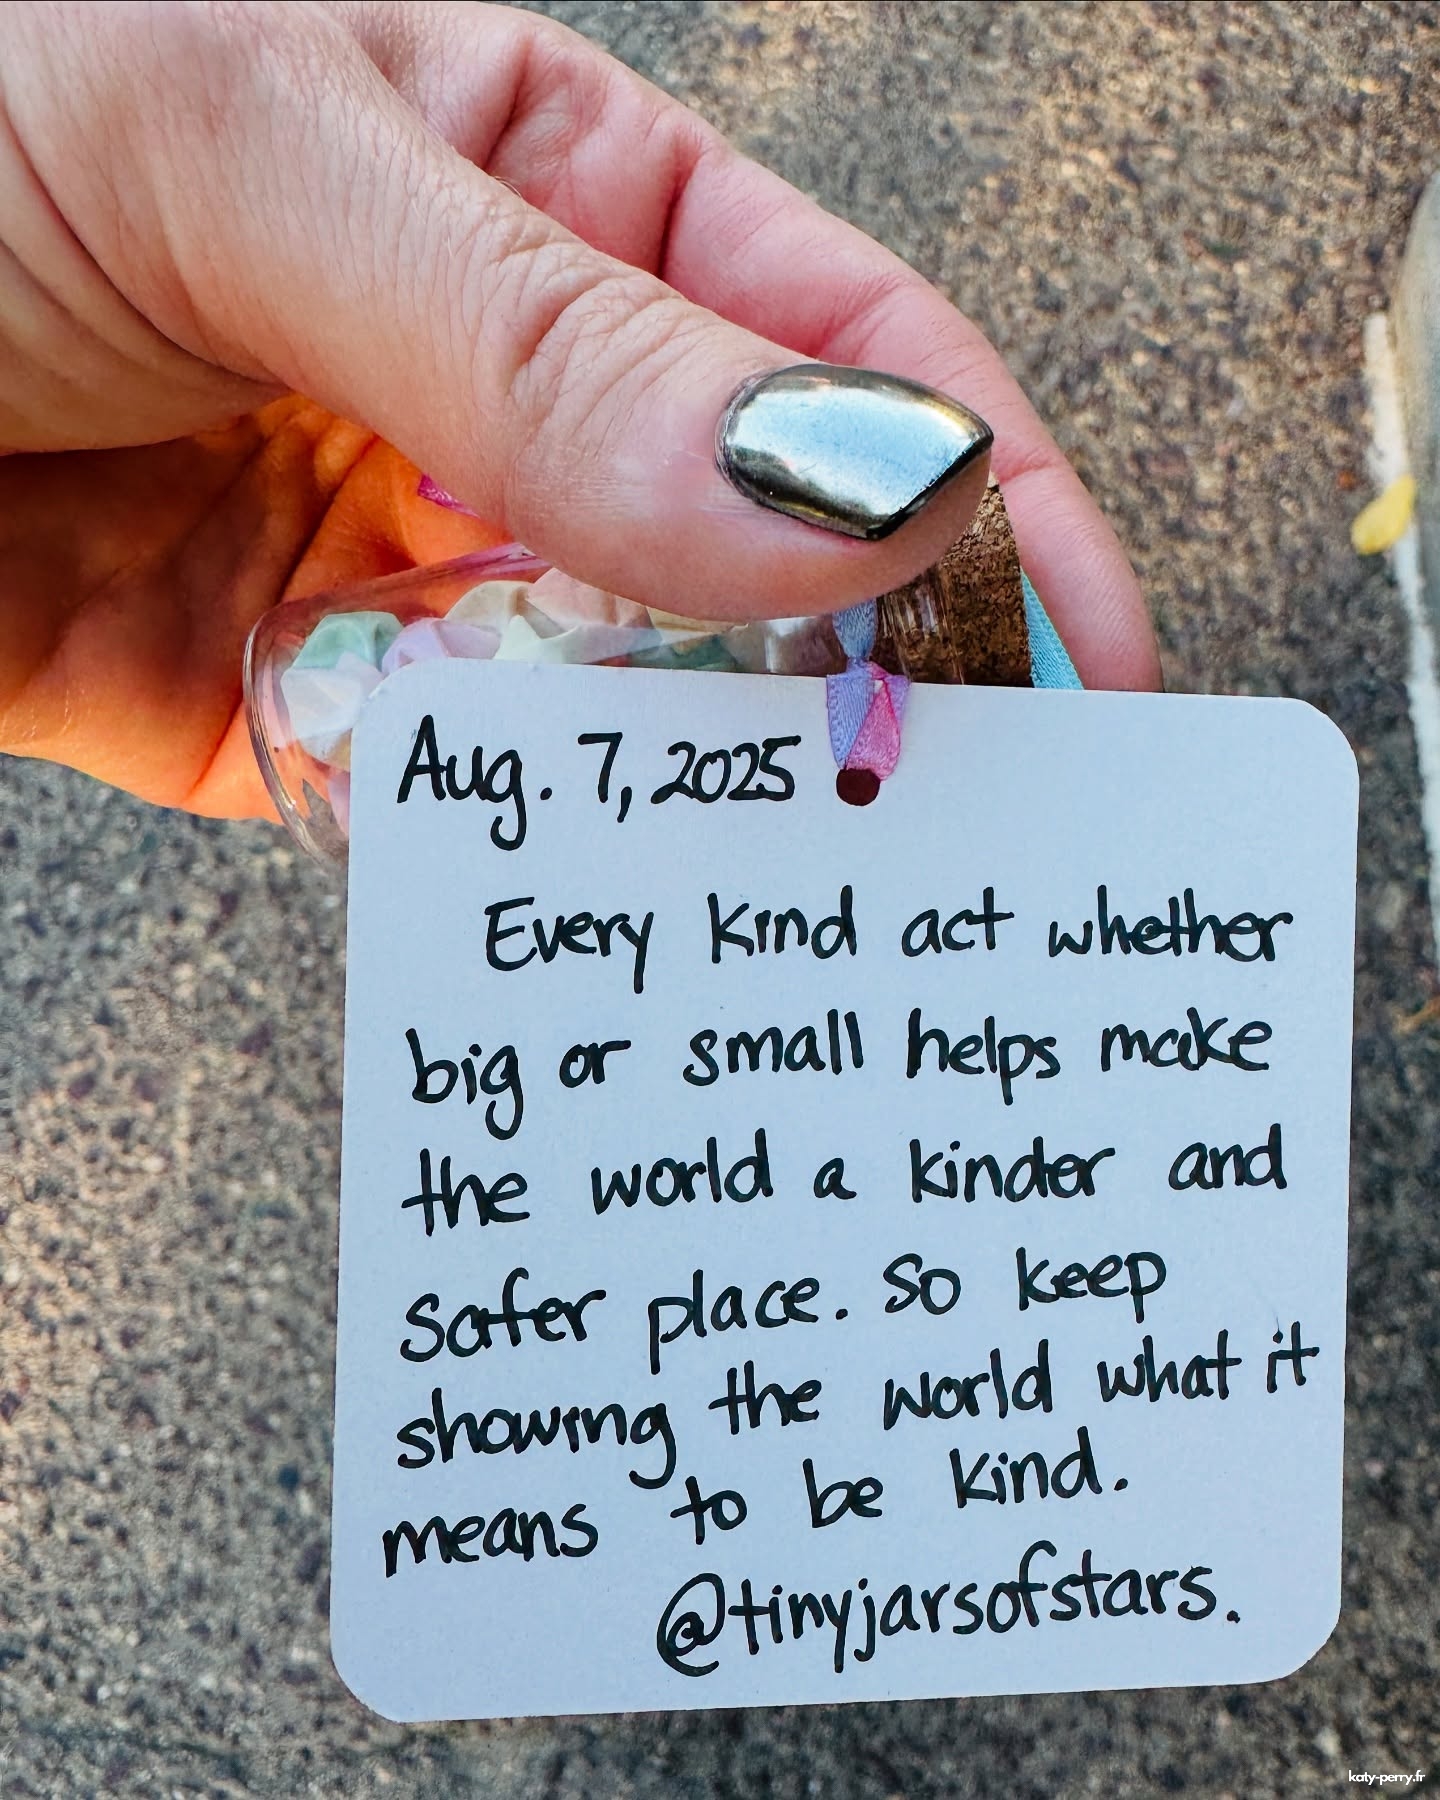 Aug. 7, 2025
Every kind act whether
big or small helps make
the world a kinder and
safer place. So keep
showing the world what it
means to be kind.
@tinyjarsofstars.
katy-perry.fr